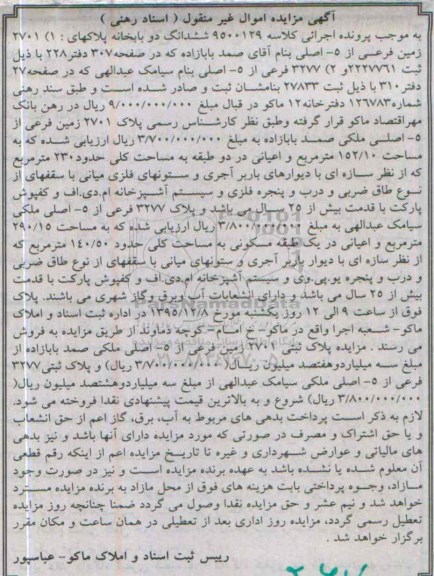 آگهی مزایده اموال غیر منقول ( اسناد رهنی )
به موجب پرونده اجرائی کلاسه ۹۵۰۰۱۳۹ ششدانگ دو بابخانه پلاکهای : ۱) ۲۷۰۱
زمین فرعی از ۵- اصلی بنام آقای صمد بابازاده که در صفحه۳۰۷ دفتر۲۲۸ با ذیل
ثبت ۲۲۲۷۷۶۱و ۲) ۳۲۷۷ فرعی از ۵- اصلی بنام سیامک عبدالهی که در صفحه۲۷
دفتر۳۱۰ با ذیل ثبت ۲۷۸۳۳ بنامشان ثبت و صادر شده است و طبق سند رهنی
شماره۱۲۶۷۸۳ دفترخانه۱۲ ماکو در قبال مبلغ ۹/۰۰۰/۰۰۰/۰۰۰ ریال در رهن بانک
مهراقتصاد ماکو قرار گرفته وطبق نظر کارشناس رسمی پلاک ۲۷۰۱ زمین فرعی از
۵- اصلی ملکی صمد بابازاده به مبلغ ۳/۷۰۰/۰۰۰/۰۰۰ ریال ارزیابی شده که به
مساحت ۱۵۲/۱۰ مترمربع و اعیانی در دو طبقه به مساحت کلی حدود۲۳۰ مترمربع
که از نظر سازه ای با دیوارهای باربر آجری و ستونهای فلزی میانی با سقفهای از
نوع طاق ضربی و درب و پنجره فلزی و سیستم آشپزخانه ام.دی.اف و کفپوش
پارکت با قدمت بیش از ۲۵ سال می باشد و پلاک ۳۲۷۷ فرعی از ۵- اصلی ملکی
سیامک عبدالهی به مبلغ ۳/۸۰۰/۰۰۰/۰۰۰ ریال ارزیابی شده که به مساحت ۲۹۰/۱۵
مترمربع و اعیانی در یک طبقه مسکونی به مساحت کلی حدود ۱۴۰/۵۰ مترمربع که
از نظر سازه ای با دیوار باربر آجری و ستونهای میانی با سقفهای از نوع طاق ضربی
و درب و پنجره یو.پی.وی و سیستم آشپزخانه ام.دی.اف و کفپوش پارکت با قدمت
بیش از ۲۵ سال می باشد و دارای انشعابات آب وبرق وگاز شهری می باشند. پلاک
فوق از ساعت ۹ الی ۱۲ روز یکشنبه مورخ ۱۳۹۵/۱۲/۸ در اداره ثبت اسناد و املاک
ماکو- شعبه اجرا واقع در ماکو- خ امام- کوچه دماوند از طریق مزایده به فروش
می رسند . مزایده پلاک ثبتی ۲۷۰۱ زمین فرعی از ۵- اصلی ملکی صمد بابازاده از
مبلغ سه میلیاردوهفتصد میلیون ریال( ۳/۷۰۰/۰۰۰/۰۰۰ ریال) و پلاک ثبتی۳۲۷۷
فرعی از ۵- اصلی ملکی سیامک عبدالهی از مبلغ سه میلیاردوهشتصد میلیون ریال(
۳/۸۰۰/۰۰۰/۰۰۰ ریال) شروع و به بالاترین قیمت پیشنهادی نقدا فروخته می شود.
لازم به ذکر است پرداخت بدهی های مربوط به آب، برق، گاز اعم از حق انشعاب
و یا حق اشتراک و مصرف در صورتی که مورد مزایده دارای آنها باشد و نیز بدهی
های مالیاتی و عوارض شهرداری و غیره تا تاریخ مزایده اعم از اینکه رقم قطعی
آن معلوم شده یا نشده باشد به عهده برنده مزایده است و نیز در صورت وجود
مازاد، وجوه پرداختی بابت هزینه های فوق از محل مازاد به برنده مزایده مسترد
خواهد شد و نیم عشر و حق مزایده نقدا وصول می گردد ضمنا چنانچه روز مزایده
تعطیل رسمی گردد، مزایده روز اداری بعد از تعطیلی در همان ساعت و مکان مقرر
برگزار خواهد شد .
رییس ثبت اسناد و املاک ماکو- عباسپور